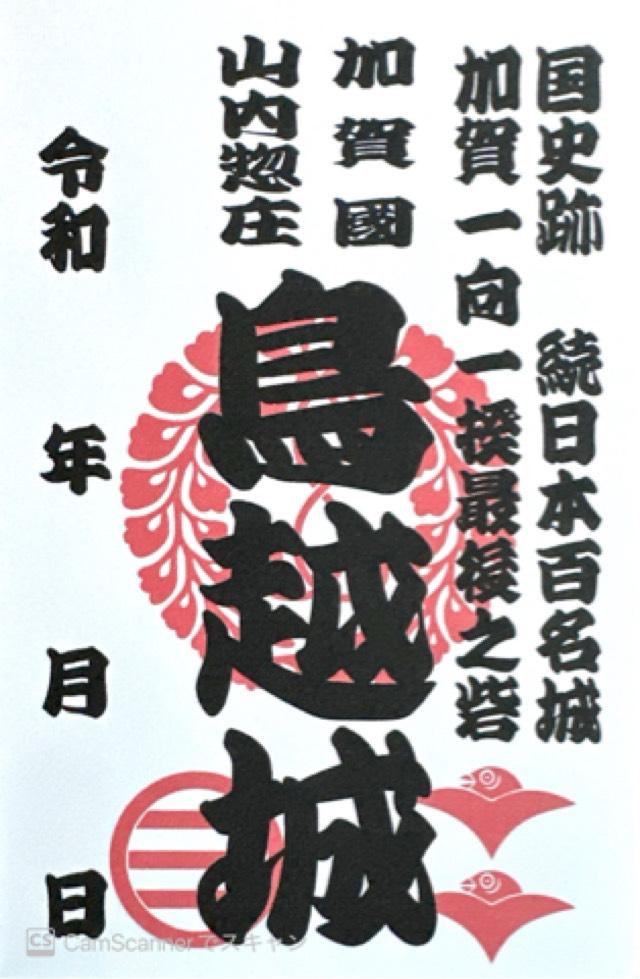 国史跡 続日本百名城
加賀一向一揆最後之砦
加賀國
山内惣庄
鳥越城
令和 年 月 日
CS CamScannerでスキャン